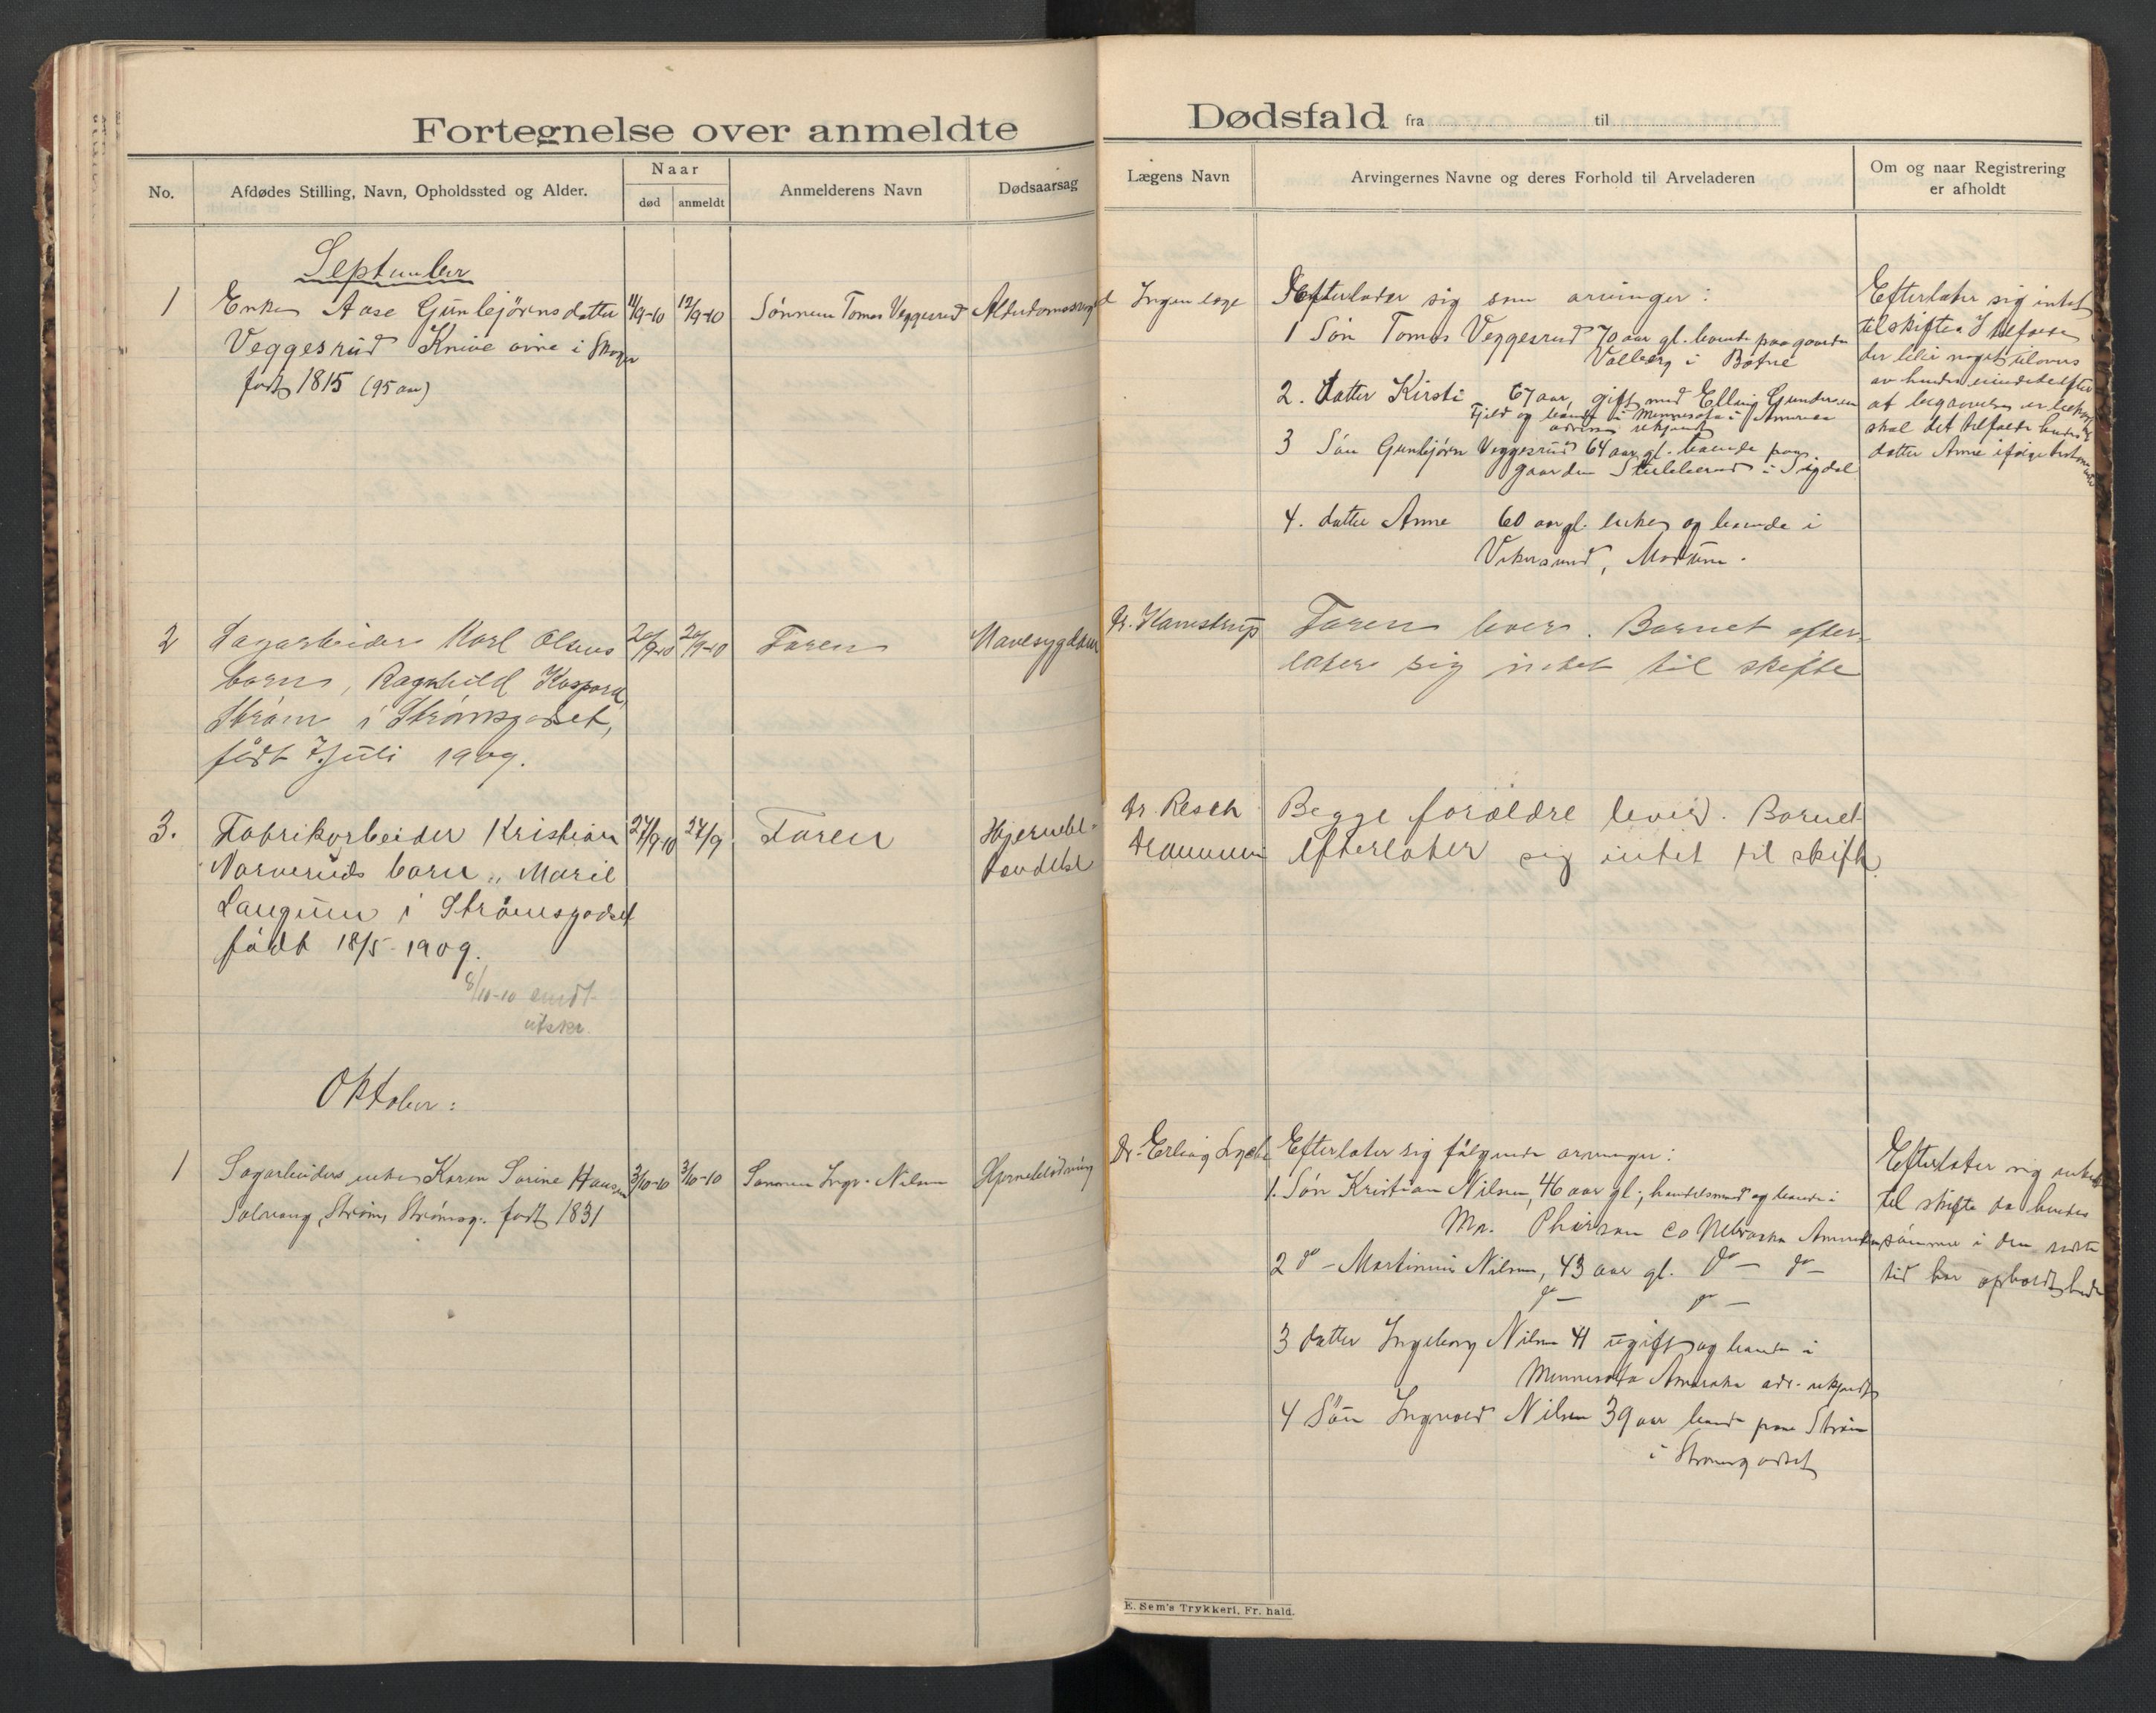 Fortegnelse over anmeldte
Dødsfald fra til
No.
Afdødes Stilling, Navn, Opholdssted og Alder.
Naar
død
anmeldt
Anmelderens Navn
Dødsaarsag
Lægens Navn
Arvingernes Navne og deres Forhold til Arveladeren
Om og naar Registrering
er afholdt
September
1 Enke Aase Gunbjörnsdatter
Veggesrud Knive övre i Skoger
født 1815 (95 aar)
11/9-10
12/9-10
Sønnen Tomas Veggesrud
Ingen læge
Efterlader sig som arvinger:
1 Søn Tomas Veggesrud 70 aar gl. boende paa gaarden
Valberg i Botne
2. datter Kirsti 67 aar, gift med Elling Gundersen
Fjeld og boende i Minnesota i Amerika
adresse ukjendt
3 Søn Gunbjørn Veggesrud 64 aar gl. boende paa
gaarden i Sigdal
4. datter Anne 60 aar gl. enke og boende i
Vikersund, Modum.
Efterlater sig intet
til skifte. I tilfælde
der blir noget tilovers
av hendes
at begravelsen er
skal det tilfalde hendes
datter Anne ifølge
2 Sagarbeider Karl Olsens
barn, Ragnhild Kaspara,
Strøm i Strømsgodset,
født 7 Juli 1909.
20/9-10
20/9-10
Faren
Mavesygdom
Dr. Kamstrup
Faren lever. Barnet efter-
later sig intet til skifte
3. Fabrikarbeider Kristian
Narveruds barn, Marie
Langum i Strømsgodset
født 18/5-1909.
27/9-10
27/9
Faren
Hjernebe-
tændelse
Dr. Resch
Drammen
Begge forældre lever. Barnet
efterlater sig intet til skifte.
8/10-10 sendt
utskr.
Oktober:
1 Sagarbeiders enke Karen Sorine Hansen
Solvang, Strøm, Strømsg. født 1831
3/10-10
3/10-10
Sønnen Ingv. Nilsen
Hjerneblødning
Dr. Erling
Efterlater sig følgende arvinger:
1. Søn Kristian Nilsen, 46 aar gl., handelsmand og boende i
Mc. Pherson Co Nebraska Amerika
2 do - Martinius Nilsen, 43 aar gl. do - do -
do - do -
3 datter Ingeborg Nilsen 41 ugift og boende i
Minnesota Amerika adr. ukjendt
4 Søn Ingvald Nilsen 39 aar boende paa Strøm
i Strømsgodset
Efterlater sig intet
til skifte da hendes
sønner i den sidste
tid har opholdt hende
E. Sem's Trykkeri, Fr. hald.